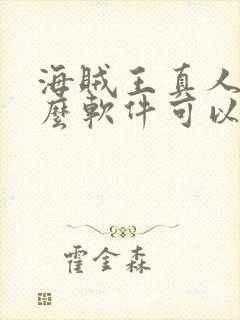 海賊王真人
麼軟件可以
霍金森